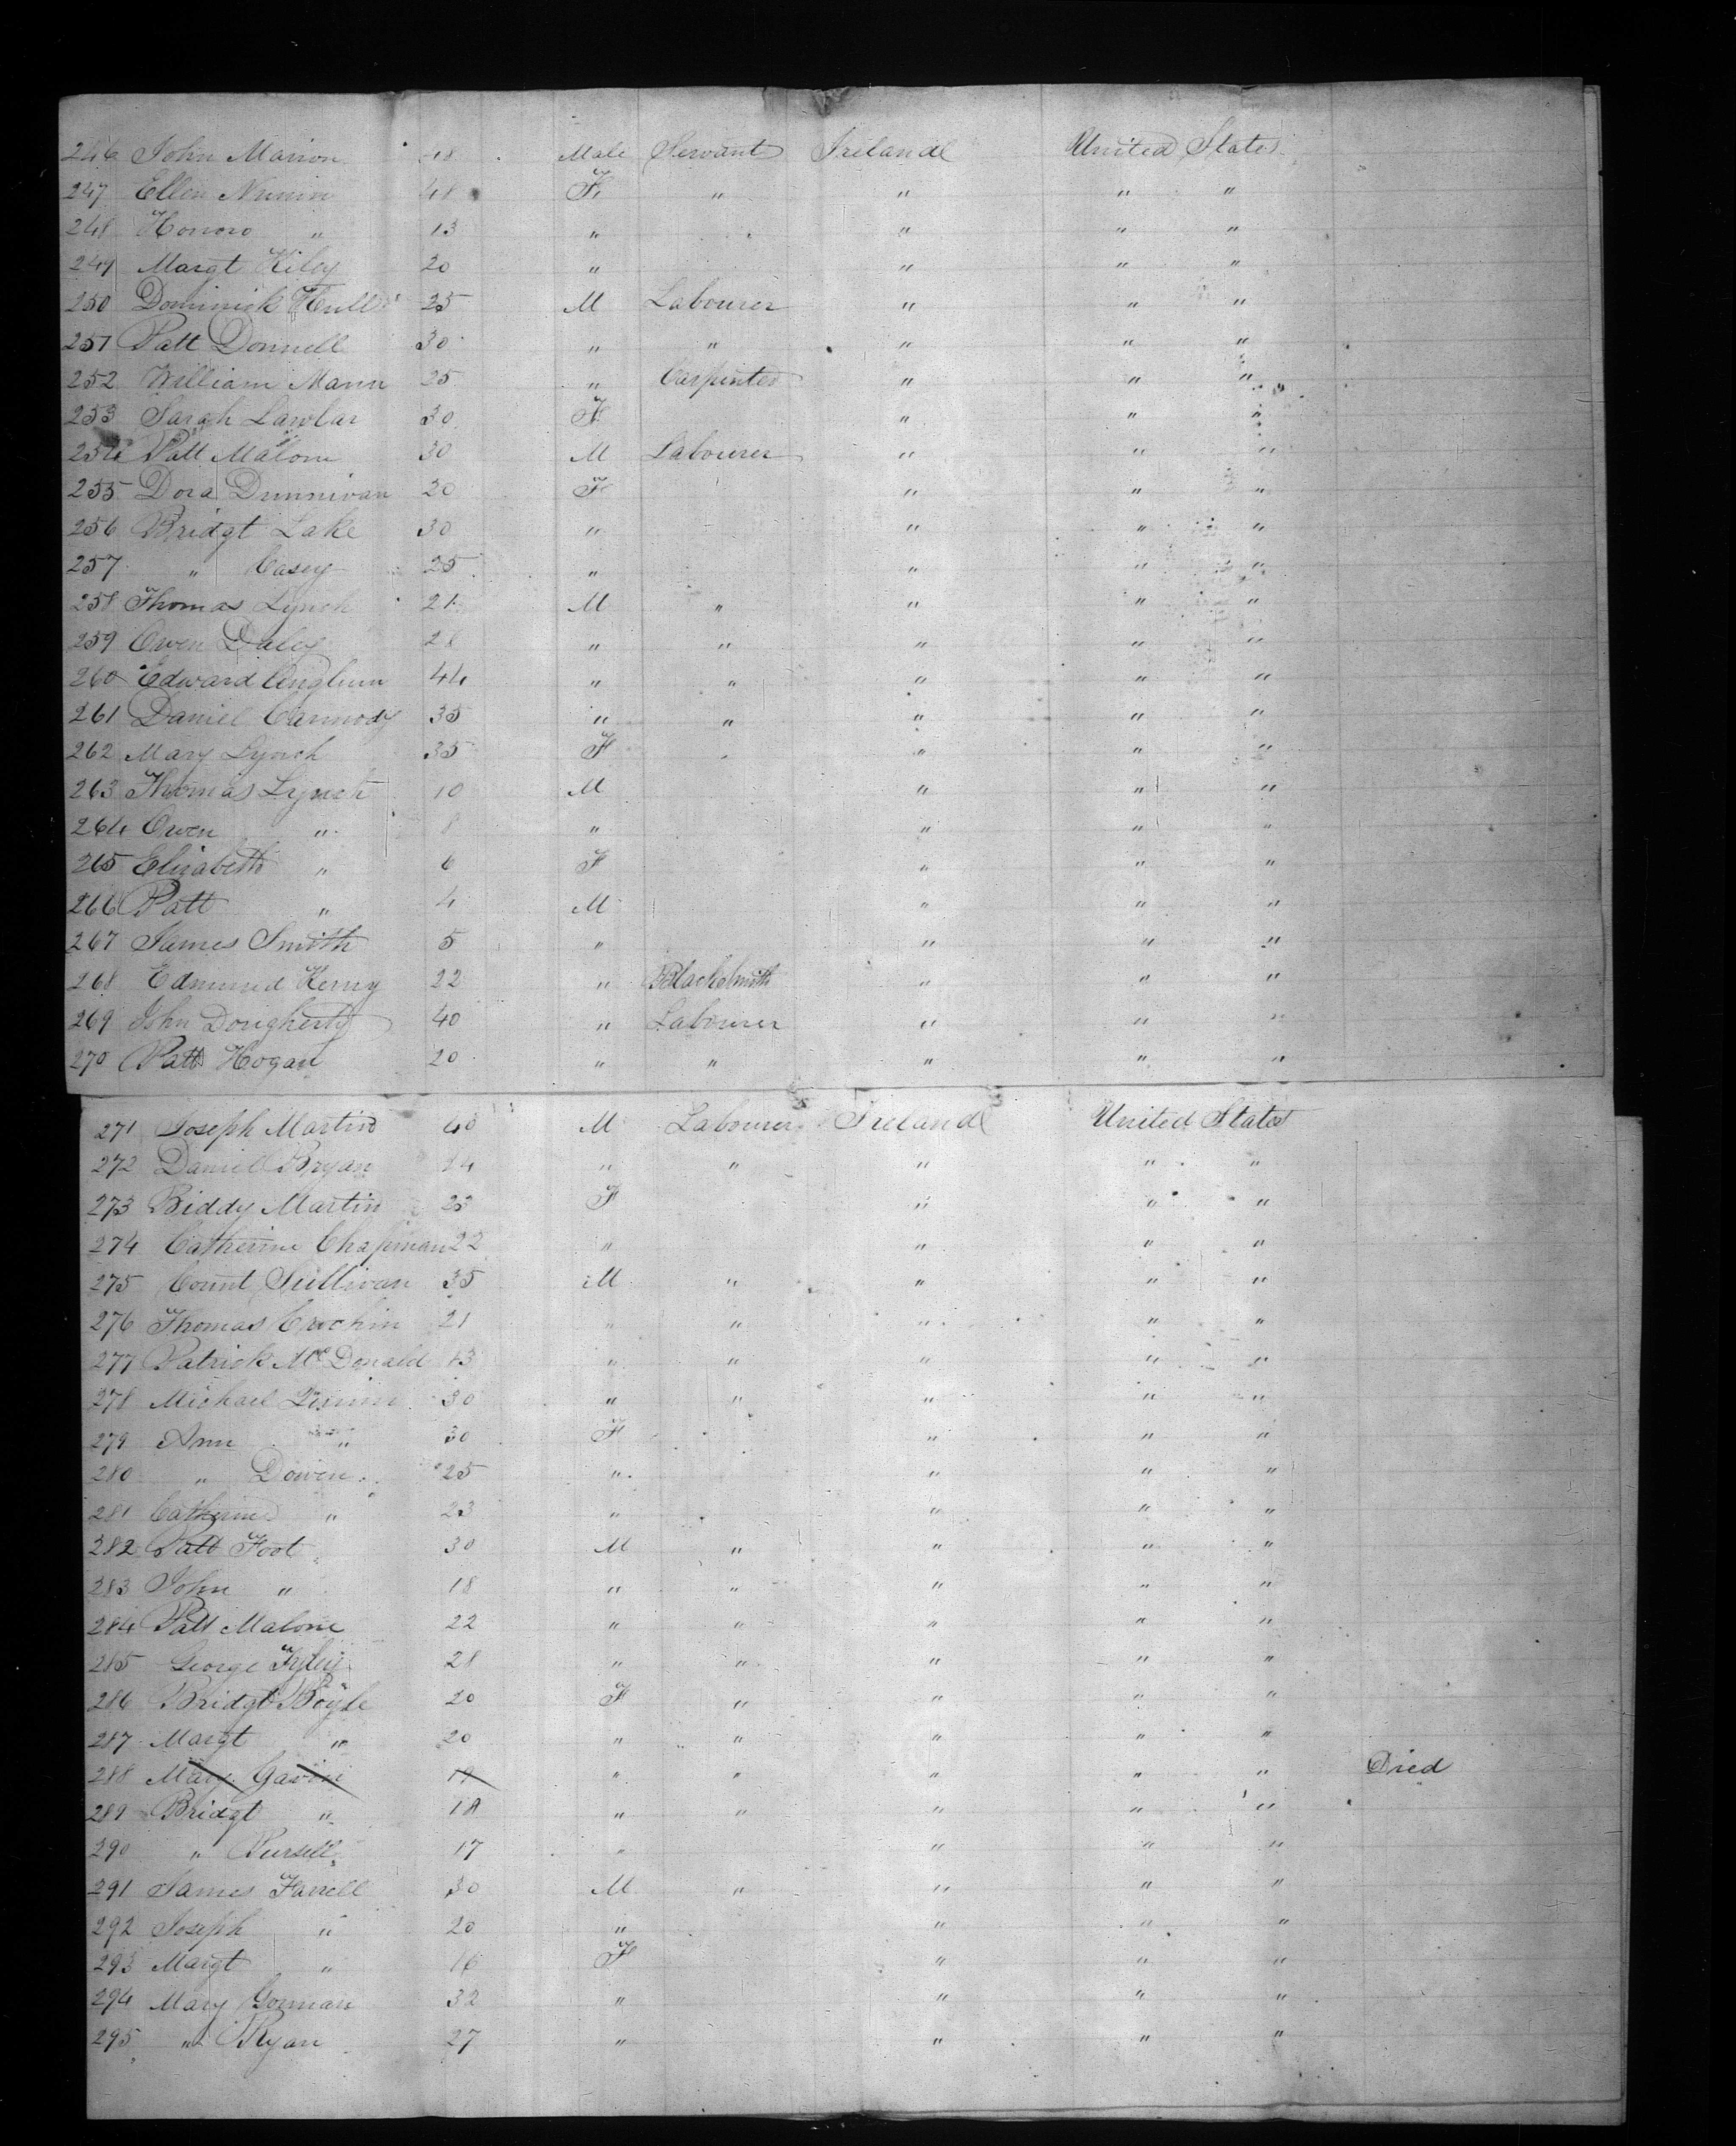 246 John Marion 18 Male Servant Ireland United States
247 Ellen Nunin 48 F " " " "
248 Honoro " 13 " " " "
249 Margt Kiley 20 " " " "
250 Dominick Hull 25 M Labourer " " "
251 Patt Donnell 30 " " " " "
252 William Mann 25 " Carpinter " " "
253 Sarah Lawlar 30 F " " "
254 Patt Malone 30 M Labourer " " "
255 Dora Dunnivan 20 F " " "
256 Bridgt Lake 30 " " " "
257 " Casey 25 " " " "
258 Thomas Lynch 21 M " " " "
259 Owen Daley 28 " " " " "
260 Edward 44 " " " " "
261 Daniel Carmody 35 " " " " "
262 Mary Lynch 35 F " " "
263 Thomas Lynch 10 M " " "
264 Owen " 8 " " " "
265 Elizabeth " 6 F " " "
266 Patt " 4 M " " "
267 James Smith 5 " " " "
268 Edmund Kenny 22 " BlackSmith " " "
269 John Dougherty 40 " Labourer " " "
270 Patt Hogan 20 " " " " "
271 Joseph Martin 40 M Labourer Ireland United States
272 Daniel Bryan 24 " " " " "
273 Biddy Martin 23 F " " "
274 Catherine Chapman 22 " " " "
275 Count Sullivan 35 M " " " "
276 Thomas Crochin 21 " " " " "
277 Patrick McDonald 13 " " " " "
278 Michael 30 " " " " "
279 Ann " 30 F " " "
280 " Dowen 25 " " " "
281 Catherine " 23 " " " "
282 Patt Foot 30 M " " " "
283 John " 18 " " " " "
284 Patt Malone 22 " " " " "
285 George 28 " " " " "
286 Bridgt Boyle 20 F " " " "
287 Margt " 20 " " " " "
288 Mary Gavin 19 " " " " " Died
289 Bridgt " 18 " " " " "
290 " Pursell 17 " " " "
291 James Farrell 30 M " " " "
292 Joseph " 20 " " " "
293 Margt " 16 F " " "
294 Mary Gorman 32 " " " "
295 " Ryan 27 " " " "